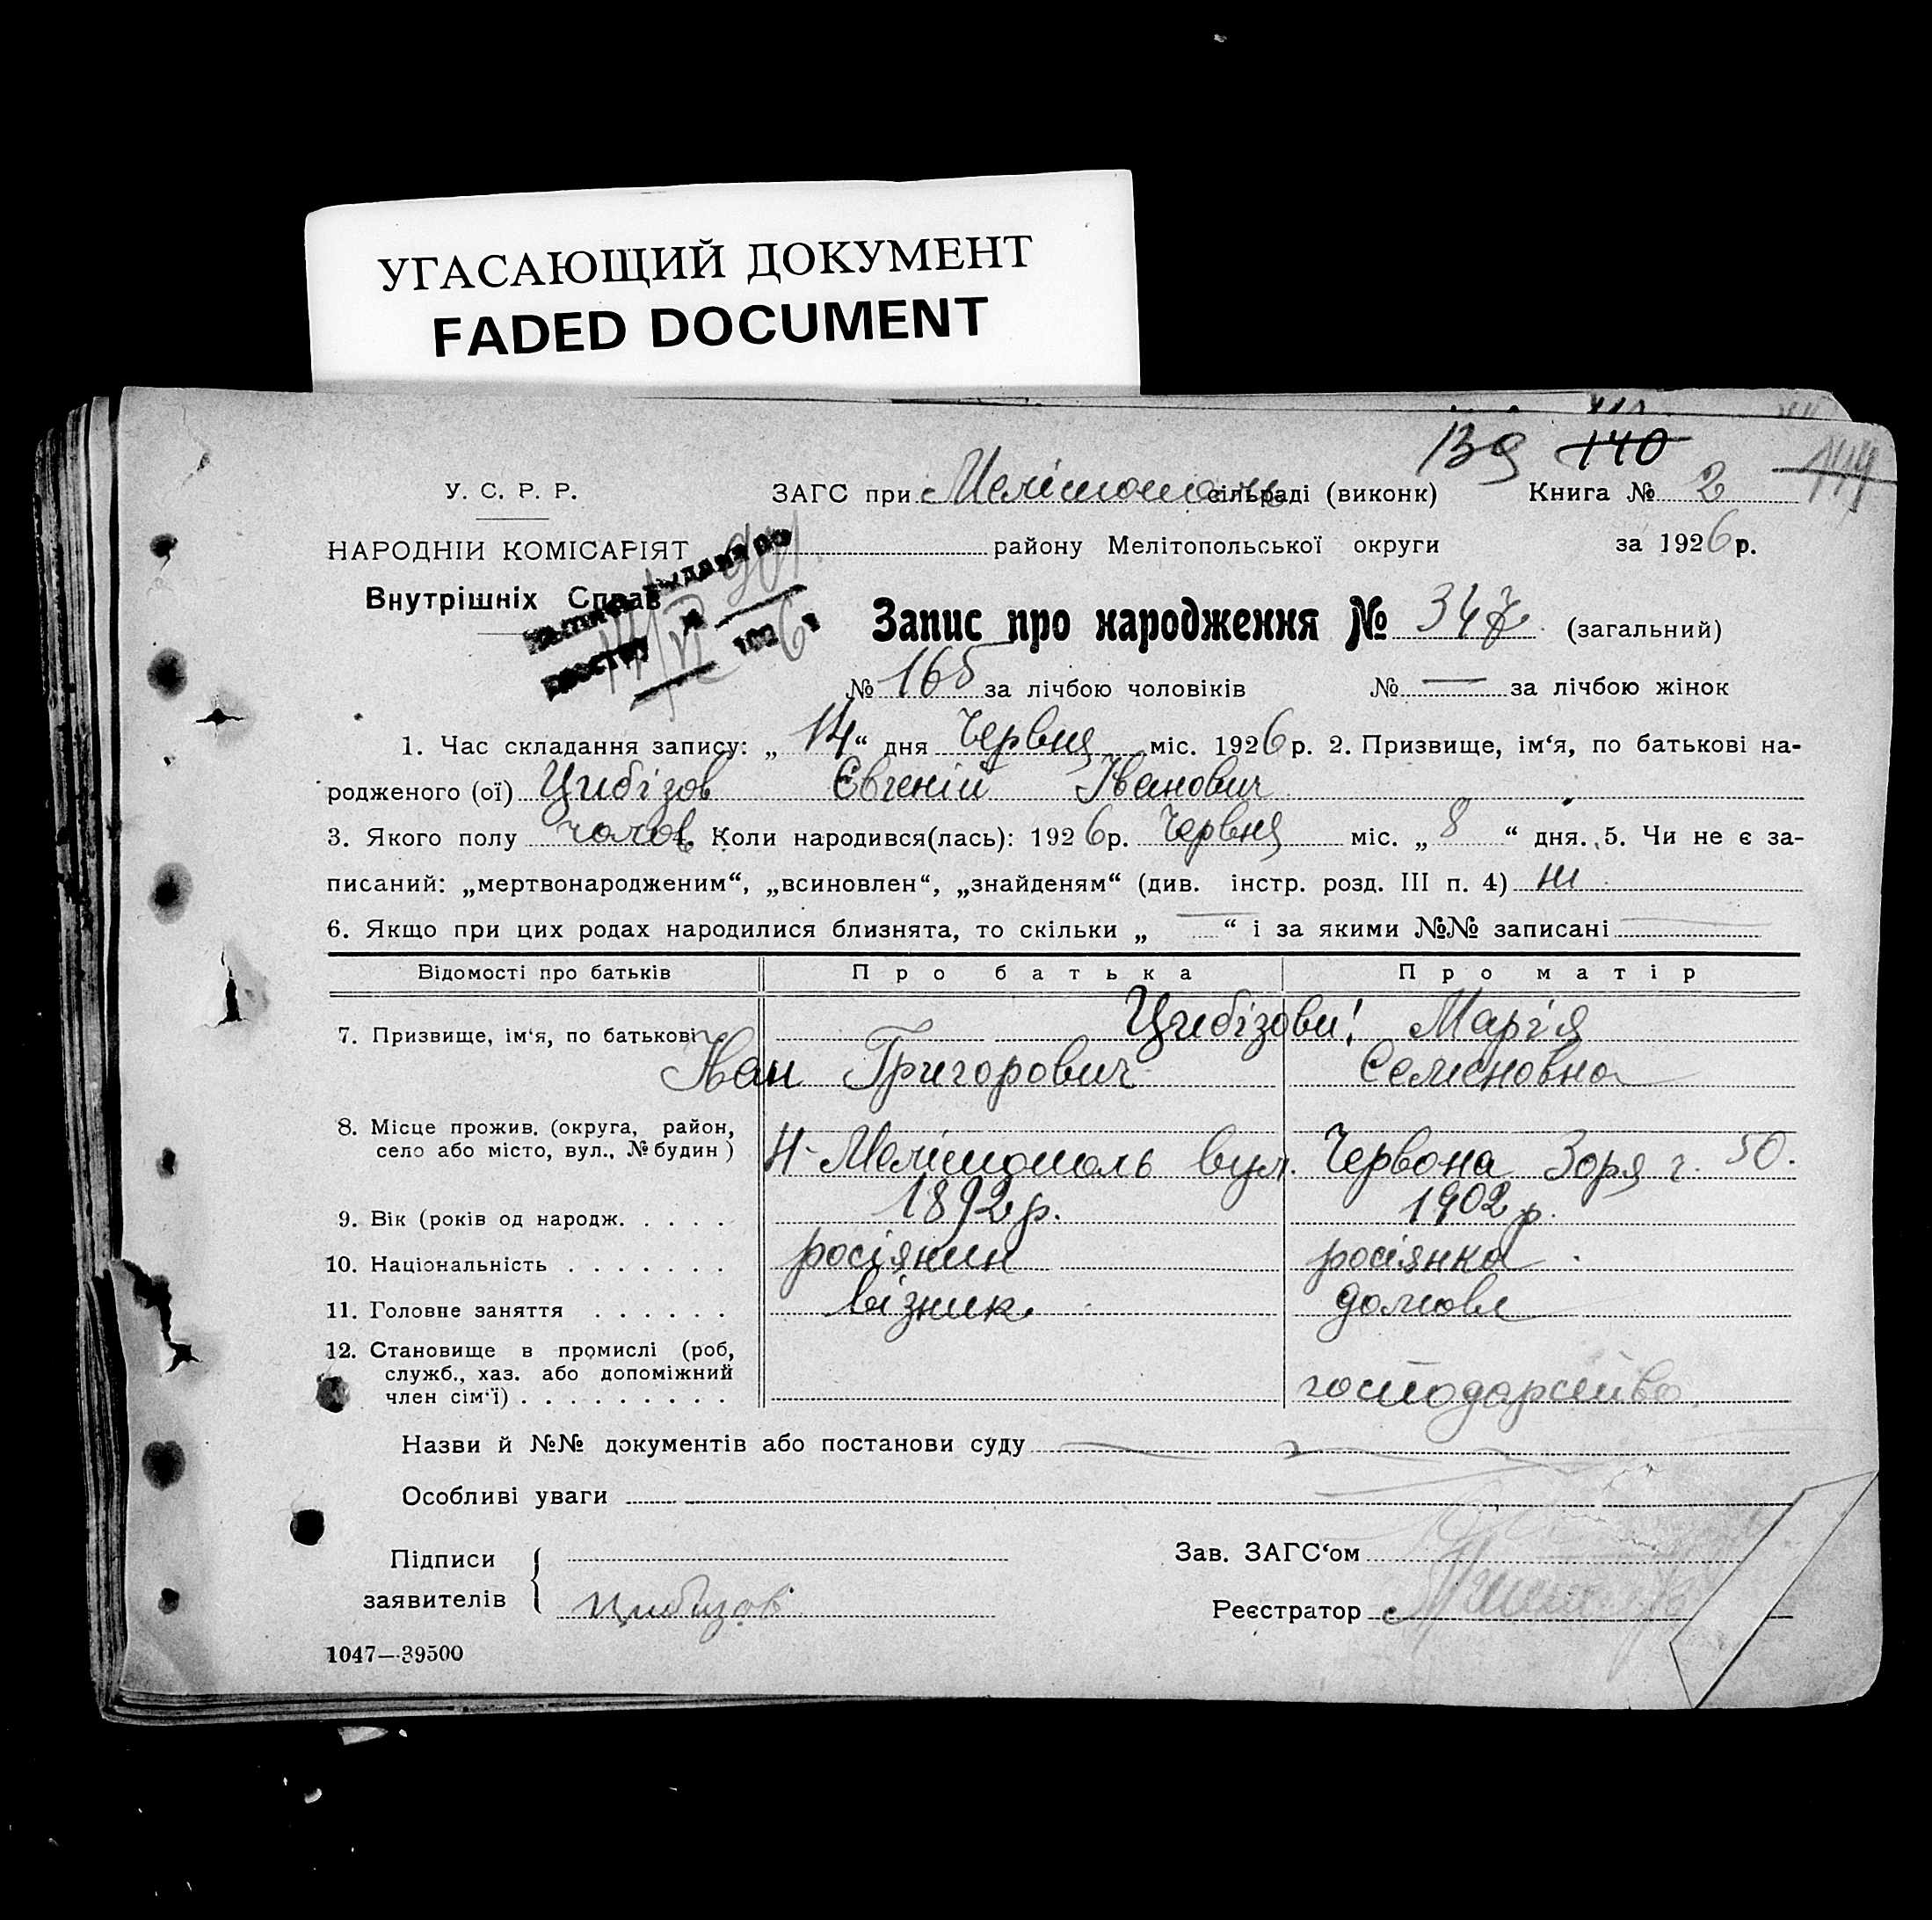 УГАСАЮЩИЙ ДОКУМЕНТ
FADED DOCUMENT
139 140 144
У. С. Р. Р.
ЗАГС при Мелітополь сільраді (виконк) Книга № 2
НАРОДНІЙ КОМІСАРІЯТ
району Мелітопольської округи за 1926 р.
Внутрішніх Справ
Запис про народження № 347 (загальний)
№ 165 за лічбою чоловіків № — за лічбою жінок
1. Час складання запису: „14“ дня Червня міс. 1926 р. 2. Призвище, ім‘я, по батькові на-
родженого (ої) Цибізов Євгеній Іванович
3. Якого полу чолов 4. Коли народився(лась): 1926 р. Червня міс. „8“ дня. 5. Чи не є за-
писаний: „мертвонародженим“, „всиновлен“, „знайденям“ (див. інстр. розд. III п. 4) ні
6. Якщо при цих родах народилися близнята, то скільки „—“ і за якими №№ записані —
Відомості про батьків Про батька Про матір
7. Призвище, ім‘я, по батькові Цибізови! Марія
Іван Григорович Семеновна
8. Місце прожив. (округа, район,
село або місто, вул., № будин) Н-Мелітополь вул. Червона Зоря г. 50.
9. Вік (років од народж. . . . . 1892 р. 1902 р.
10. Національність . . . . . . . росіянин росіянка
11. Головне заняття . . . . . . візник. домове
12. Становище в промислі (роб,
служб., хаз. або допоміжний
член сім‘ї) . . . . . . . . . господарство
Назви й №№ документів або постанови суду
Особливі уваги
Підписи
Зав. ЗАГС‘ом
заявителів Цибизов
Реєстратор
1047—39500